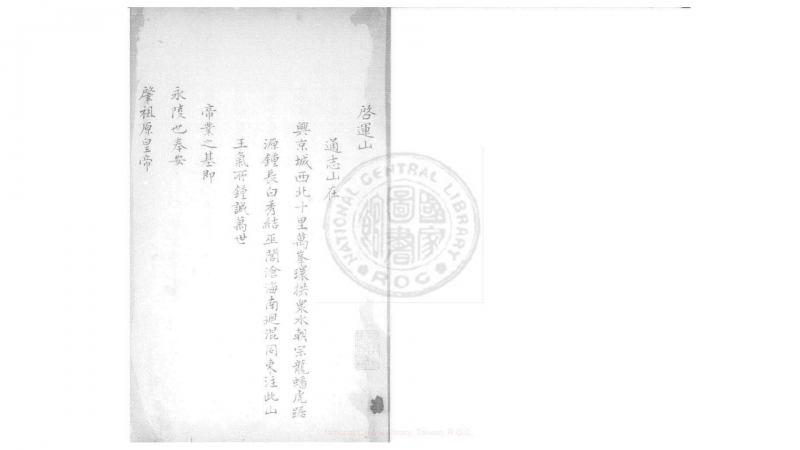 啓運山
通志山在
興京城西北十里萬峯環拱衆水朝宗龍蟠虎踞
源鍾長白秀結巫閭滄海南迴混同東注此山
王氣所鍾誠萬世
帝業之基即
永陵也奉安
肇祖原皇帝
國家圖書館
NATIONAL CENTRAL LIBRARY
ROC